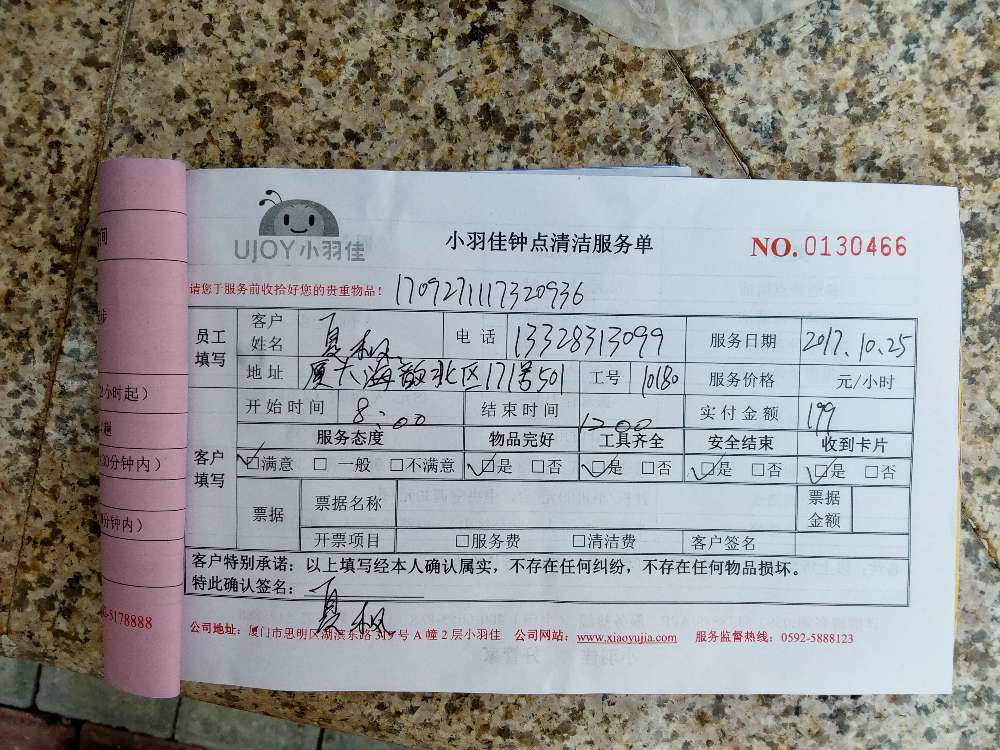 UJOY小羽佳
小羽佳钟点清洁服务单
NO.0130466
请您于服务前收拾好您的贵重物品！ 1709271117320936
员工填写 客户姓名 夏枫 电话 13328313099 服务日期 2017.10.25
地址 厦大海韵北区171号501 工号 10180 服务价格 元/小时
开始时间 8:00 结束时间 12:00 实付金额 199
客户填写 服务态度 物品完好 工具齐全 安全结束 收到卡片
☑满意 □一般 □不满意 ☑是 □否 ☑是 □否 ☑是 □否 ☑是 □否
票据 票据名称 票据金额
开票项目 □服务费 □清洁费 客户签名
客户特别承诺：以上填写经本人确认属实，不存在任何纠纷，不存在任何物品损坏。
特此确认签名： 夏枫
公司地址：厦门市思明区湖滨东路319号A幢2层小羽佳 公司网站：www.xiaoyujia.com 服务监督热线：0592-5888123
间
步
2小时起）
30分钟内）
分钟内）
5178888